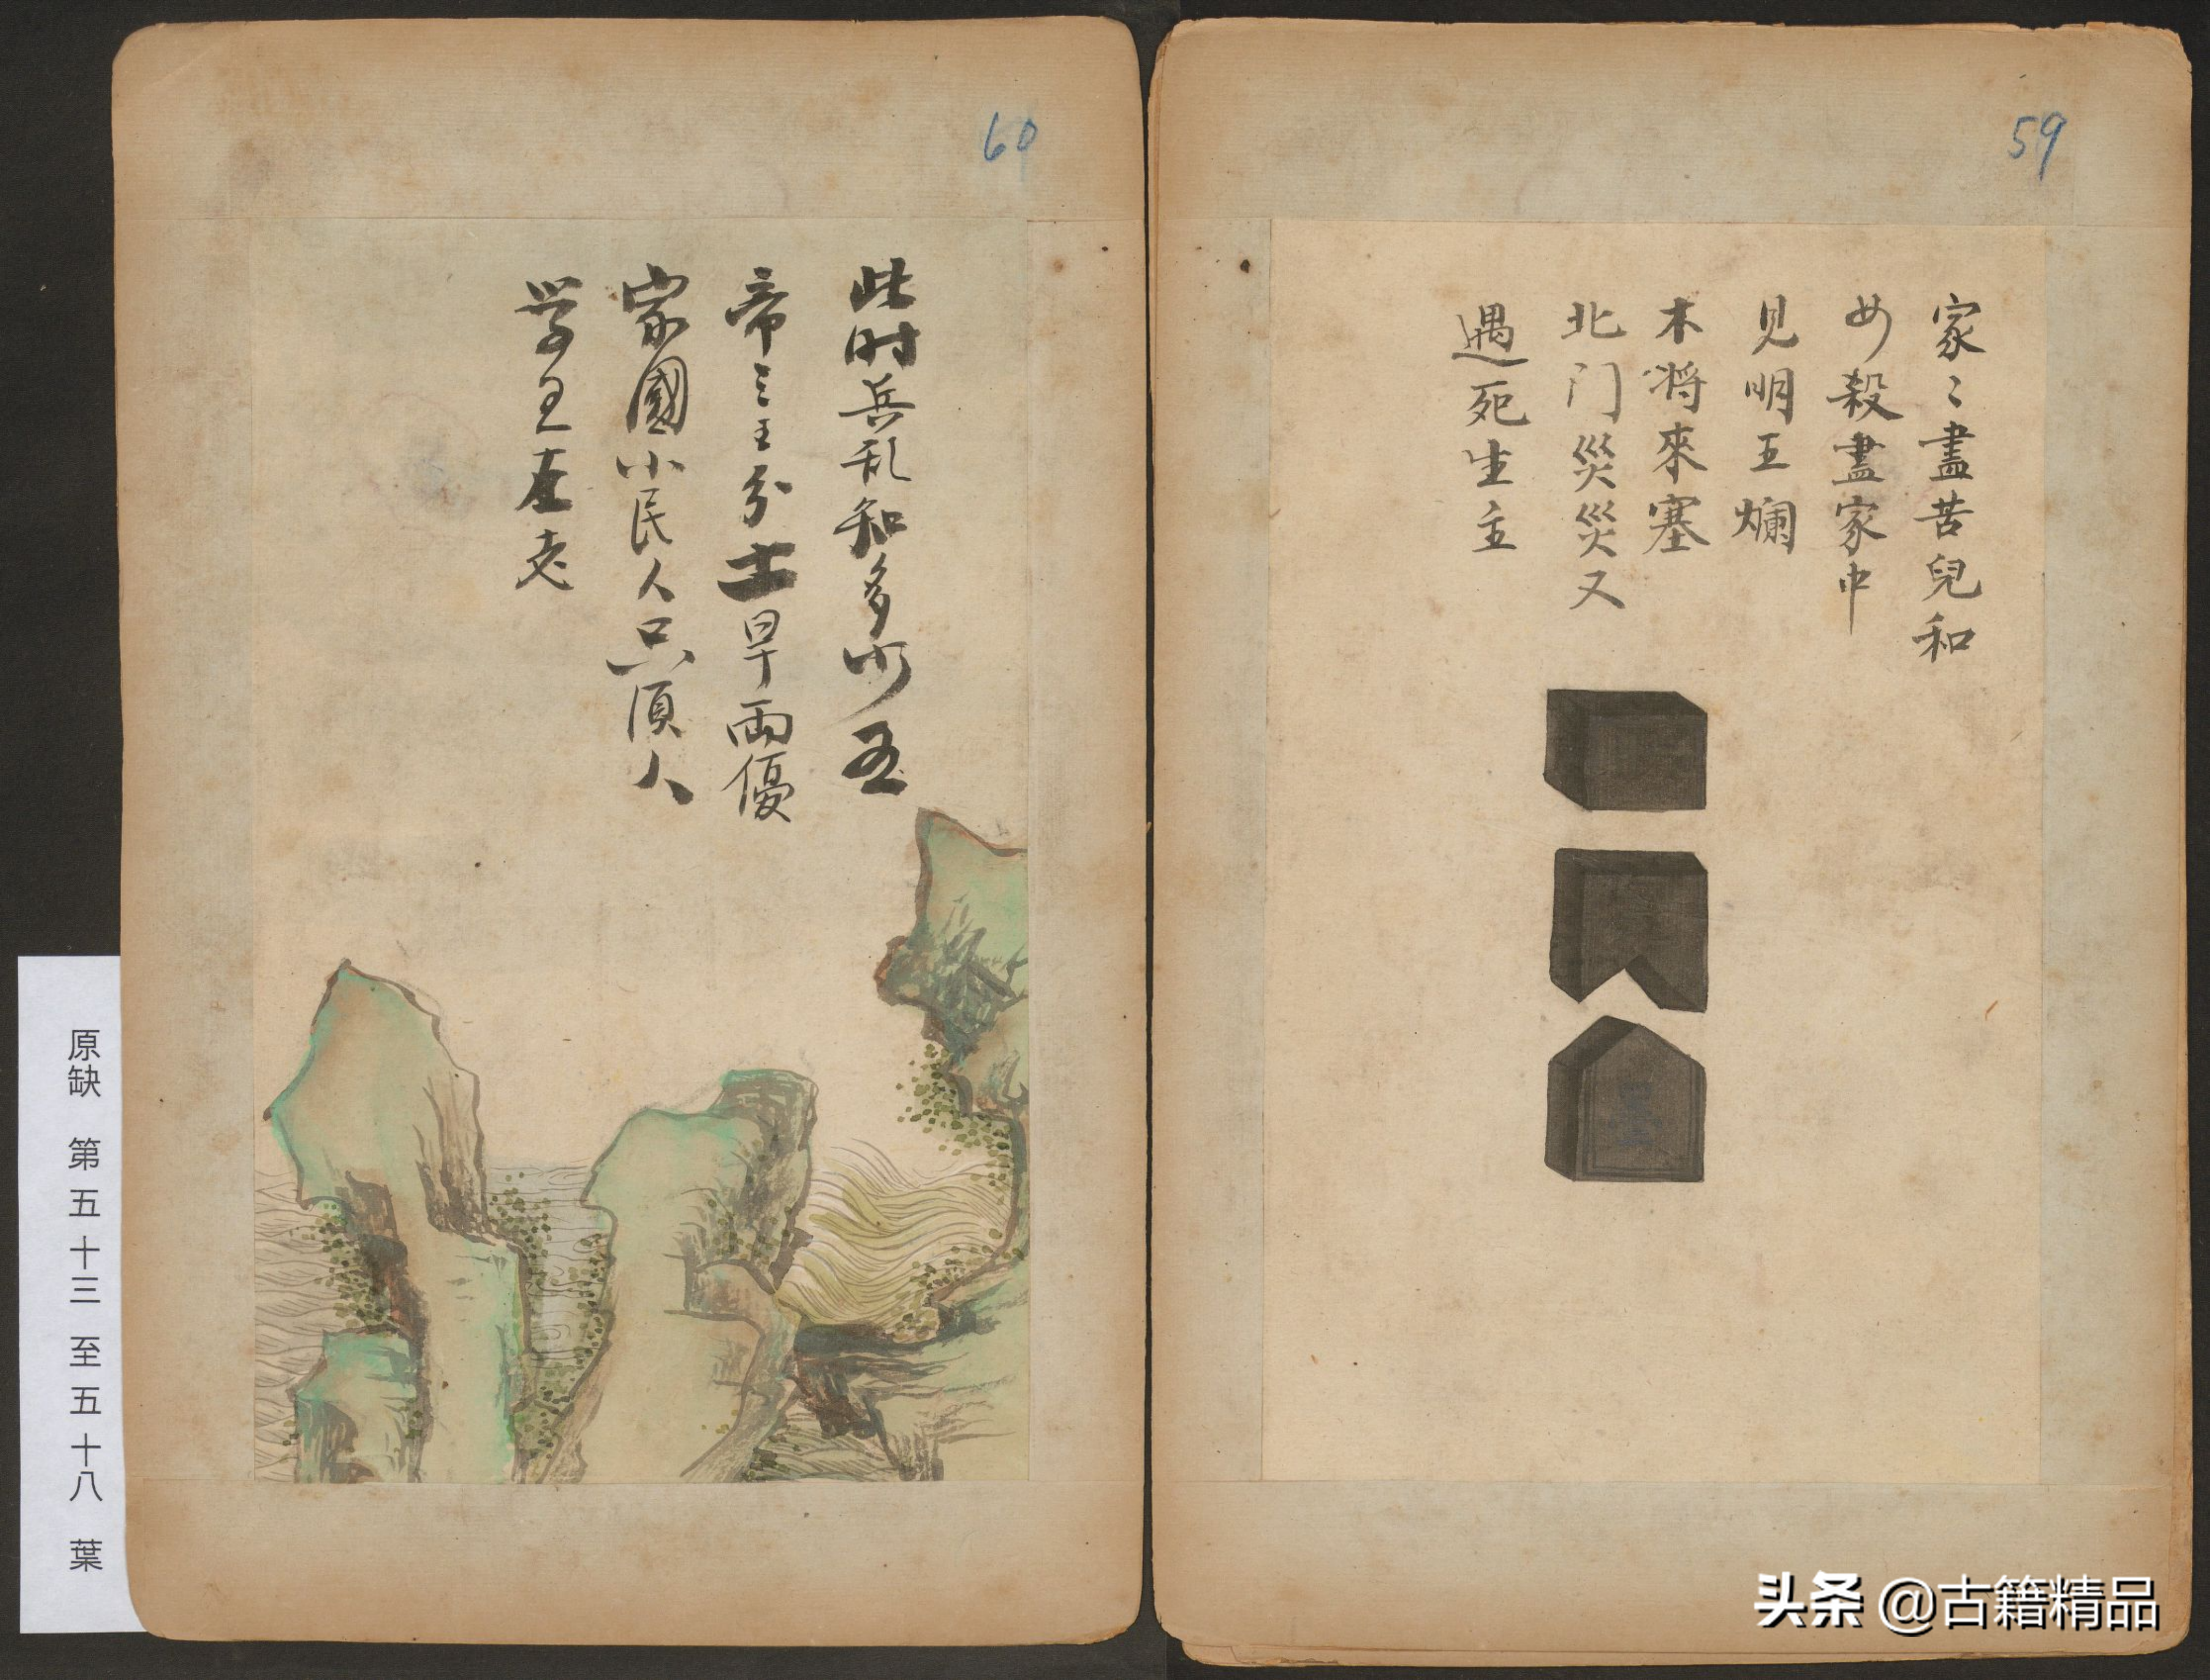 59
家〻盡苦兒和
女殺盡家中
見明五爛
木將來塞
北门災災又
遇死生主
60
此时兵乱知多少五
帝三王分士旱兩優
家國小民人只湏人
学
原缺 第五十三至五十八葉
头条 @古籍精品